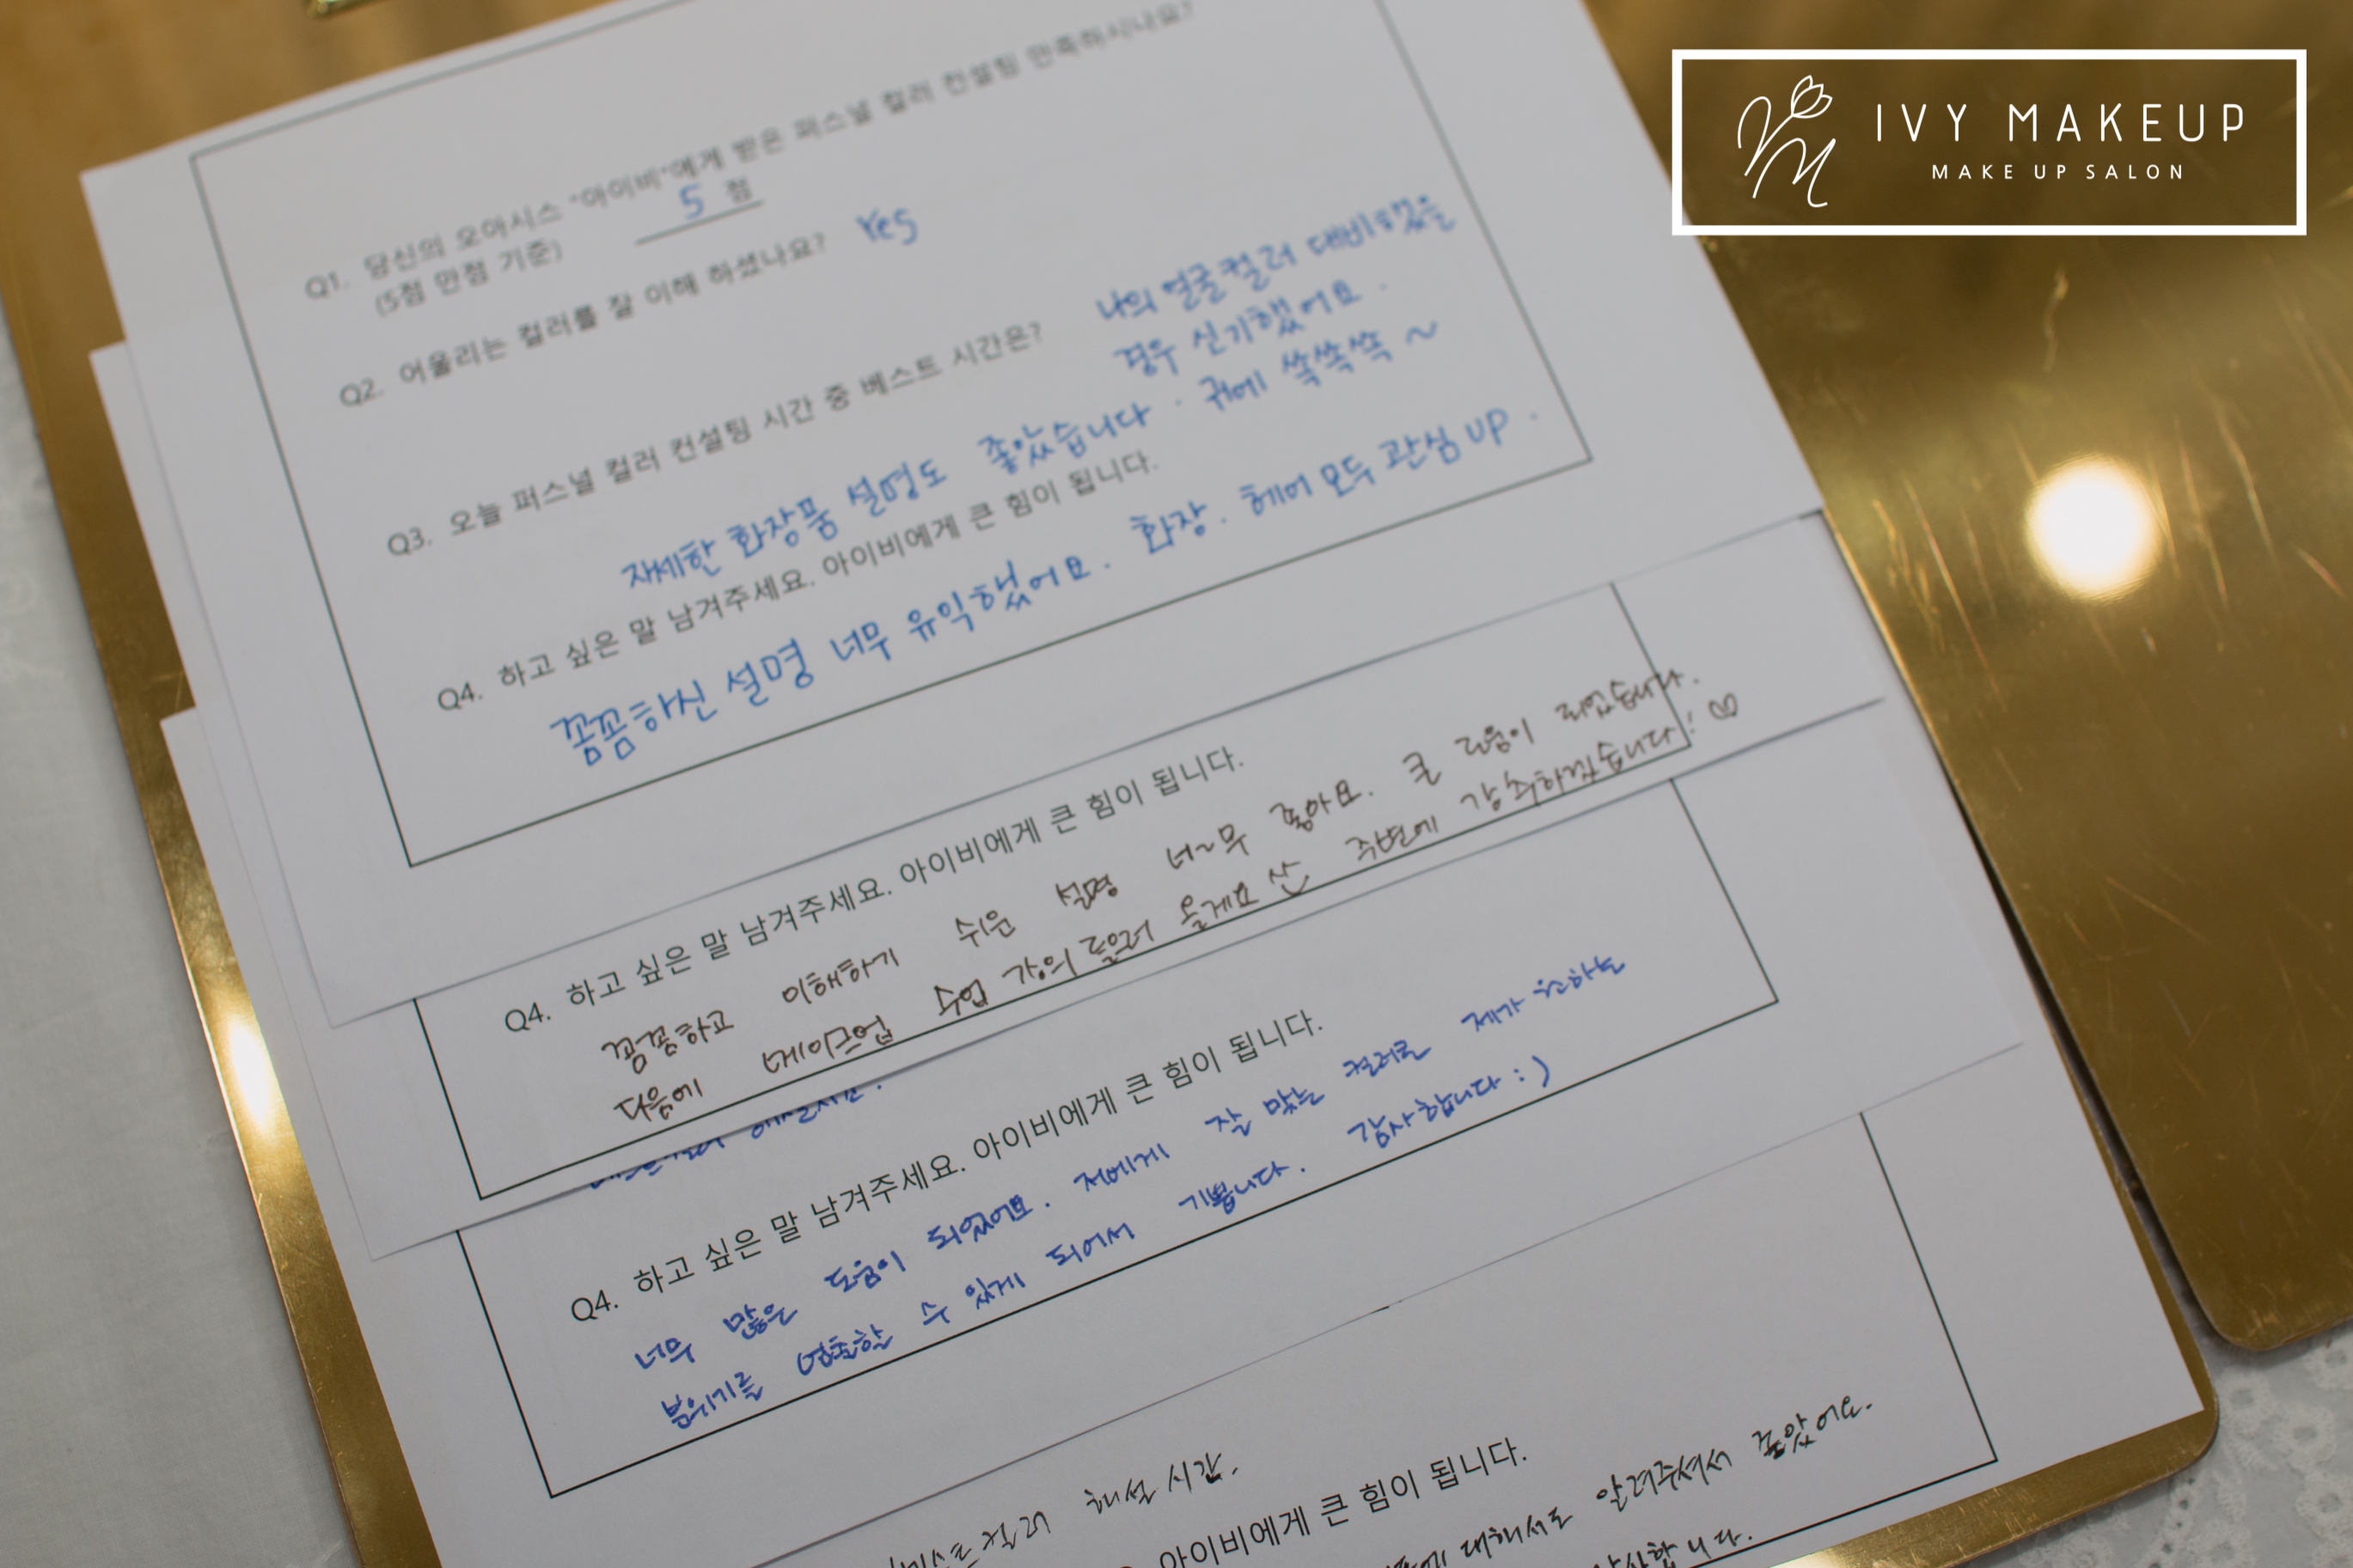 IVY MAKEUP
MAKE UP SALON
Q1. 당신의 오아시스 "아이비"에게 받은 퍼스널 컬러 컨설팅 만족하시나요?
(5점 만점 기준) 5 점
Q2. 어울리는 컬러를 잘 이해 하셨나요? Yes
Q3. 오늘 퍼스널 컬러 컨설팅 시간 중 베스트 시간은? 나의 얼굴컬러 대비했을
경우 신기했어요.
자세한 화장품 설명도 좋았습니다. 귀에 쏙쏙쏙~
Q4. 하고 싶은 말 남겨주세요. 아이비에게 큰 힘이 됩니다.
꼼꼼하신 설명 너무 유익했어요. 화장. 헤어 모두 관심 UP.
Q4. 하고 싶은 말 남겨주세요. 아이비에게 큰 힘이 됩니다.
꼼꼼하고 이해하기 쉬운 설명 너~무 좋아요. 큰 도움이 되었습니다.
다음에 메이크업 수업 강의 들으러 올게요 주변에 강추하겠습니다! ♡
Q4. 하고 싶은 말 남겨주세요. 아이비에게 큰 힘이 됩니다.
너무 많은 도움이 되었어요. 저에게 잘 맞는 컬러로 제가 원하는
분위기를 연출할 수 있게 되어서 기쁩니다. 감사합니다 :)
베스트컬러 해설 시간.
아이비에게 큰 힘이 됩니다.
에 대해서도 알려주셔서 좋았어요.
감사합니다.